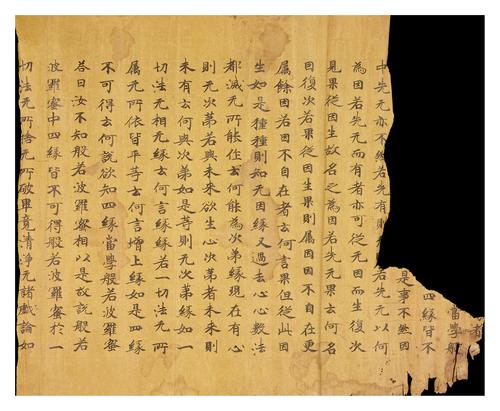 者
當學般
四緣皆不
是事不然因
中先无亦不然若先有則若先无以何
為因若先无而有者亦可從无因而生復次
見果從因生故名之為因若先无果云何名
因復次若果從因生果則屬因因不自在更
屬餘因若因不自在者云何言果但從此因
生如是種種則知无因緣又過去心心數法
都滅无所能作云何能為次第緣現在有心
則无次第若與未來欲生心次第者未來則
未有云何與次第如是等則无次第緣如一
切法无相无緣云何言緣緣若一切法无所
屬无所依皆平等云何言增上緣如是四緣
不可得云何說欲知四緣當學般若波羅蜜
荅曰汝不知般若波羅蜜相以是故說般若
波羅蜜中四緣皆不可得般若波羅蜜於一
切法无所捨无所破畢竟清淨无諸戲論如